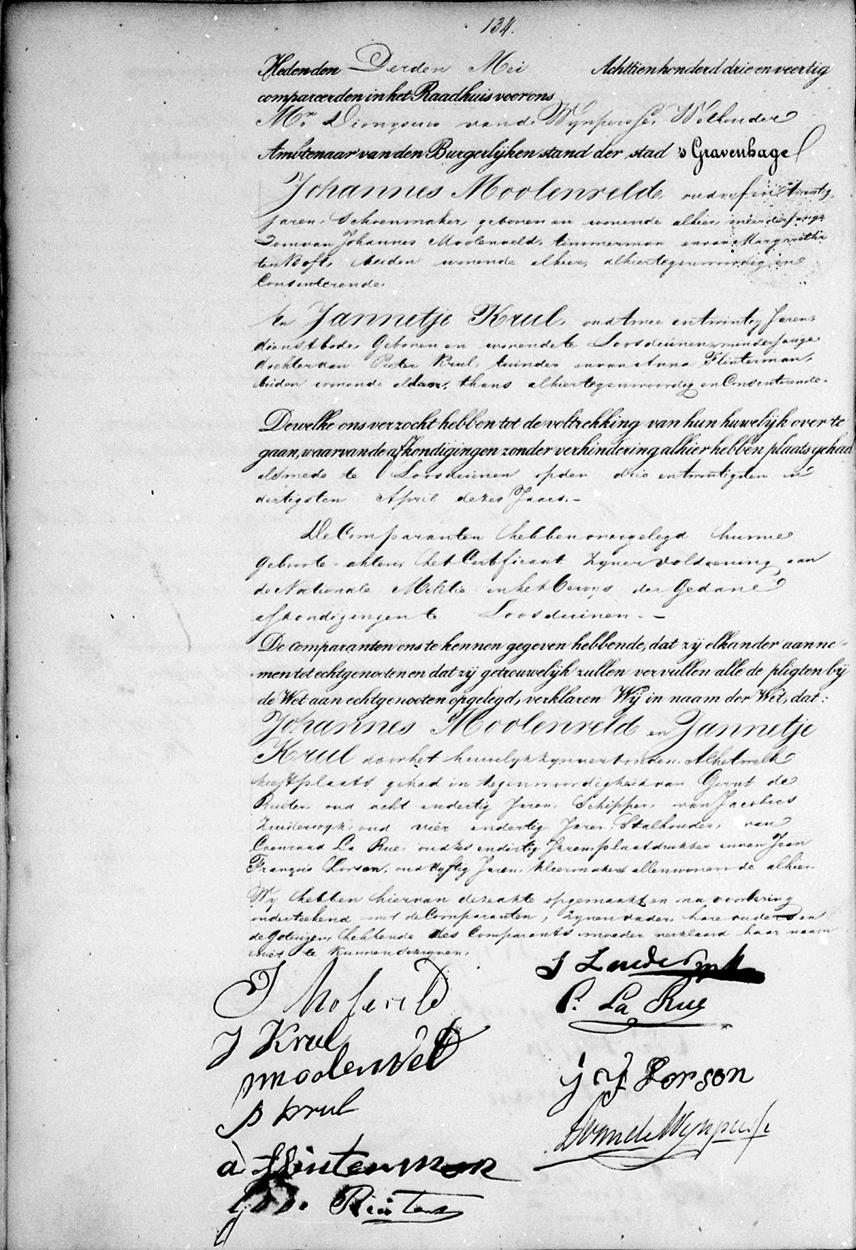 134.
Heden den Derden Mei Achttienhonderd drie en veertig
compareerden in het Raadhuis voor ons
Mr. Dionysius van de Wynpersse, Wethouder
Ambtenaar van den Burgerlijken stand der stad 's Gravenhage
Johannes Moolenveld, oud vyf en twintig
Jaren, Schoenmaker, geboren en wonende alhier, meerderjarige
Zoon van Johannes Moolenveld, timmerman en van Margaretha
beiden wonende alhier, alhier tegenwoordig en
Consenterende
En Jannetje Krul, oud twee en twintig Jaren,
dienstbode, Geboren en wonende te Loosduinen, minderjarige
dochter van Pieter Krul, tuinder en van Anna Flinterman,
beiden wonende aldaar, thans alhier tegenwoordig en Consenterende.
Dewelke ons verzocht hebben tot de voltrekking van hun huwelijk over te
gaan, waarvan de afkondigingen zonder verhindering alhier hebben plaats gehad
alsmede te Loosduinen op den drie en twintigsten en
dertigsten April dezes Jaars.-
De Comparanten hebben overgelegd hunne
geboorte-akten, het Certificaat zyner voldoening aan
de Nationale Militie en het bewys der Gedane
afkondigingen te Loosduinen.-
De comparanten ons te kennen gegeven hebbende, dat zij elkander aanne-
men tot echtgenooten en dat zij getrouwelijk zullen vervullen alle de pligten bij
de Wet aan echtgenooten opgelegd, verklaren Wij in naam der Wet, dat:
Johannes Moolenveld en Jannetje
Krul door het huwelyk zyn verbonden. Al hetwelk
heeft plaats gehad in tegenwoordigheid van Gerrit de
Ruiter, oud acht en dertig Jaren, Schipper, van Jacobus
Zuiderwyk, oud vier en dertig Jaren, Stalhouder, van
Coenraad La Rue, oud zes en dertig Jaren, plaatdrukker en van Jean
François Lorson, oud vyftig Jaren, kleermaker, allen wonende alhier.
Wy hebben hiervan deze akte opgemaakt en na voorlezing
onderteekend met de Comparanten, zynen vader, hare ouders en
de Getuigen, hebbende des Comparants moeder verklaard haar naam
niet te kunnen schryven.
J Zuiderwyk
C. La Rue
J Krul
moolenveld
p krul
J F Lorson
a flinterman
DvandeWynpersse
G. de Ruiter